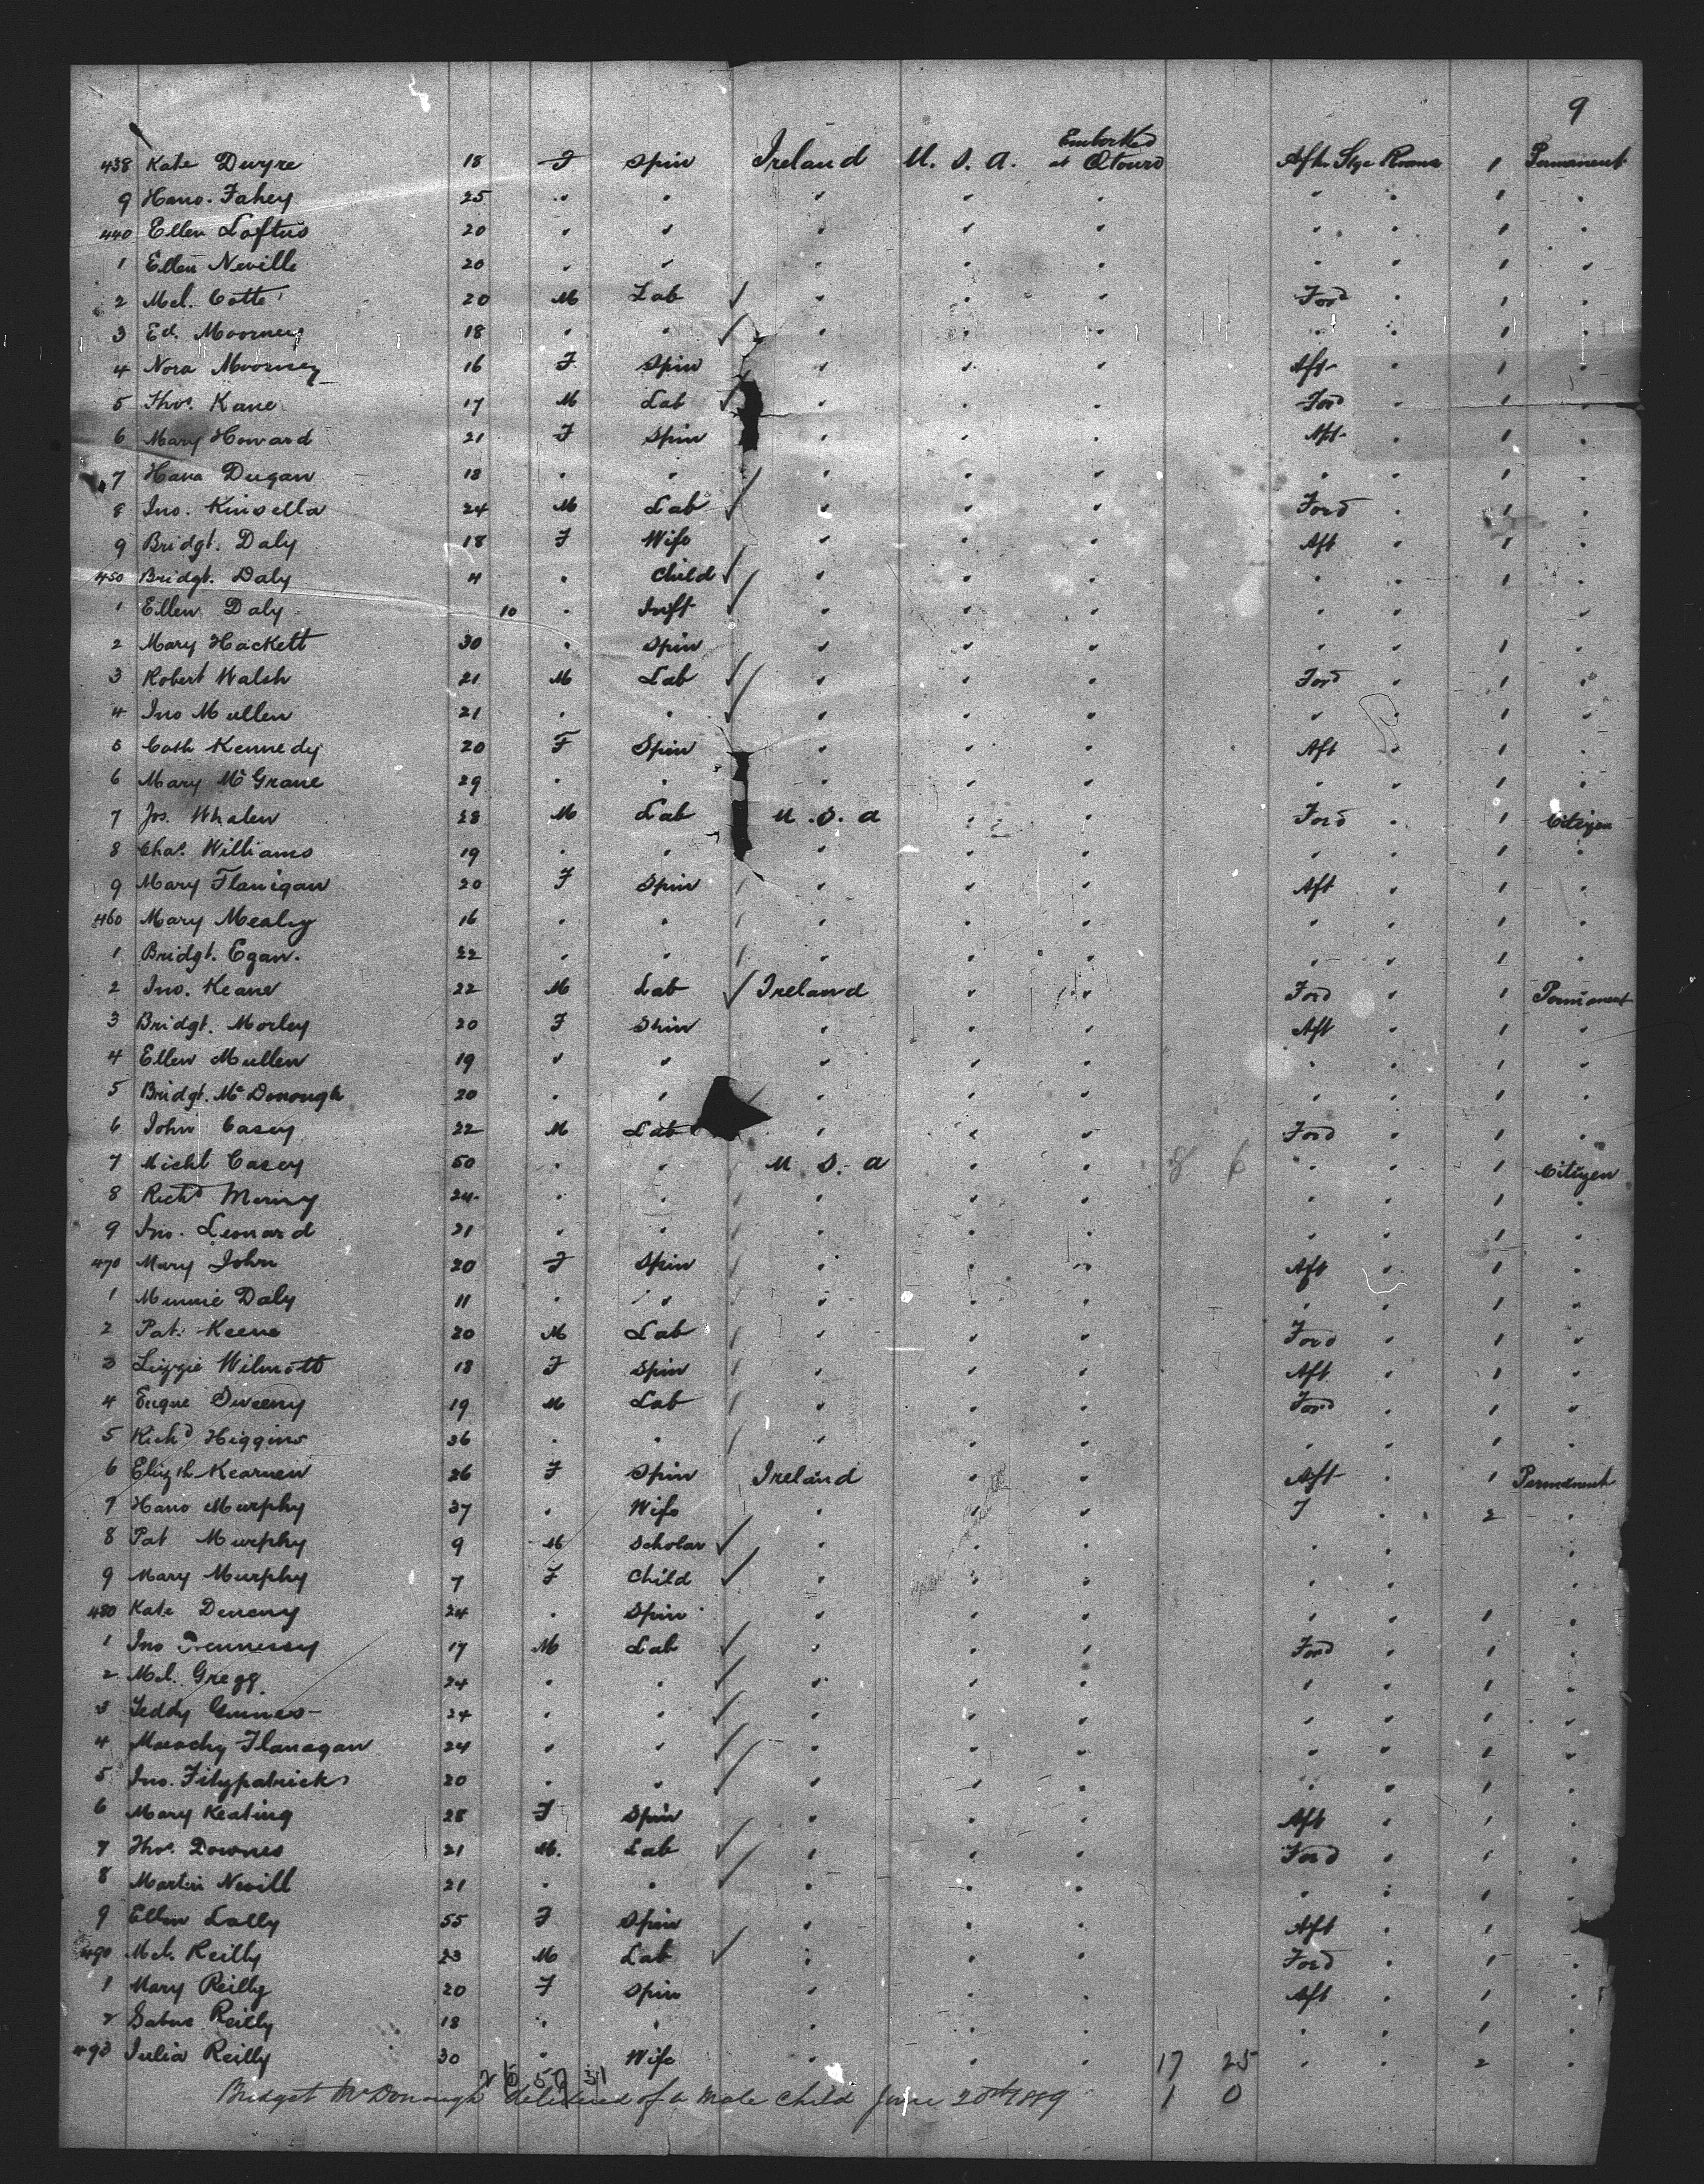 9
438 Kate Dwyre 18 F Spin Ireland U. S. A. Embarked at Qtown Aft Stge Rooms 1 Permanent
9 Hano. Fahey 25 " " " " " " " 1 "
440 Ellen Loftus 20 " " " " " " " 1 "
1 Ellen Neville 20 " " " " " " " 1 "
2 Mcl. Cotte 20 M Lab ✓ " " " Ford " 1 "
3 Ed. Moorney 18 " " ✓ " " " " " 1 "
4 Nora Moorney 16 F Spin " " " Aft " 1 "
5 Thos. Kane 17 M Lab ✓ " " " Ford " 1 "
6 Mary Howard 21 F Spin " " " Aft " 1 "
7 Hana Dugan 18 " " " " " " " 1 "
8 Jno. Kinsella 24 M Lab ✓ " " " Ford " 1 "
9 Bridgt. Daly 18 F Wife " " " Aft " 1 "
450 Bridgt. Daly 4 " Child ✓ " " " " " 1 "
1 Ellen Daly 10 " Inft ✓ " " " " " "
2 Mary Hackett 30 " Spin " " " " " 1 "
3 Robert Walsh 21 M Lab ✓ " " " Ford " 1 "
4 Jno Mullen 21 " " ✓ " " " " " 1 "
5 Cath Kennedy 20 F Spin " " " Aft " 1 "
6 Mary McGrane 29 " " " " " " " 1 "
7 Jos. Whalen 28 M Lab U. S. A " " Ford " 1 Citizen
8 Chas. Williams 19 " " " " " " " 1 "
9 Mary Flanigan 20 F Spin " " " Aft " 1 "
460 Mary Mealy 16 " " " " " " " 1 "
1 Bridgt. Egan. 22 " " " " " " " 1 "
2 Jno. Keane 22 M Lab ✓ Ireland " " Ford " 1 Permanent
3 Bridgt. Morley 20 F Spin " " " Aft " 1 "
4 Ellen Mullen 19 " " " " " " " 1 "
5 Bridgt. McDonough 20 " " " " " " " 1 "
6 John Casey 22 M Lab " " " Ford " 1 "
7 Michl Casey 50 " " U. S. A " " 8 6 " " 1 Citizen
8 Richd 24 " " " " " " " 1 "
9 Jno. Leonard 21 " " " " " " " 1 "
470 Mary John 20 F Spin " " " Aft " 1 "
1 Minnie Daly 11 " " " " " " " 1 "
2 Pat. Keene 20 M Lab " " " Ford " 1 "
3 Lizzie Wilmott 18 F Spin " " " Aft " 1 "
4 Eugne Sweeny 19 M Lab " " " Ford " 1 "
5 Richd Higgins 36 " " " " " " " 1 "
6 Elizth Kearnen 26 F Spin Ireland " " Aft " 1 Permanent
7 Hano Murphy 37 " Wife " " " F " 2 "
8 Pat Murphy 9 M Scholar ✓ " " " " " "
9 Mary Murphy 7 F Child ✓ " " " " " "
480 Kate Deneny 24 " Spin " " " " " 1 "
1 Jno Hennessy 17 M Lab ✓ " " " Ford " 1 "
2 Mcl. Gregg. 24 " " ✓ " " " " " 1 "
3 Teddy 24 " " ✓ " " " " " 1 "
4 Flanagan 24 " " ✓ " " " " " 1 "
5 Jno. Fitzpatrick 20 " " ✓ " " " " " 1 "
6 Mary Keating 28 F Spin " " " Aft " 1 "
7 Thos. Downes 21 M. Lab ✓ " " " Ford " 1 "
8 Martin Nevill 21 " " ✓ " " " " " 1 "
9 Ellen Lally 55 F Spin " " " Aft " 1 "
490 Mcl. Reilly 23 M Lab ✓ " " " Ford " 1 "
1 Mary Reilly 20 F Spin " " " Aft " 1 "
2 Reilly 18 " " " " " " " 1 "
493 Julia Reilly 30 " Wife " " " 17 25 " " 2 "
Bridget McDonough delivered of a male child June 20th 1889 1 0